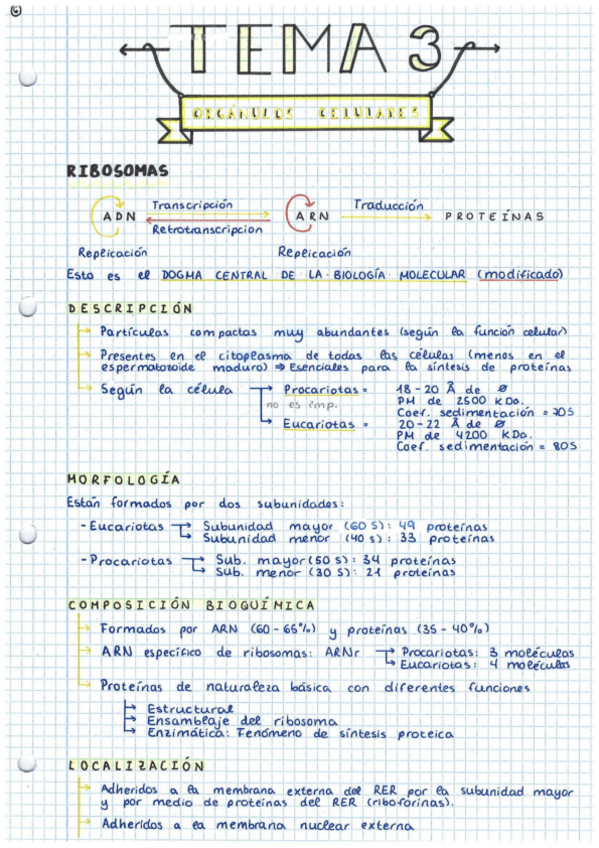 TEMA 3
ORGÁNULOS CELULARES
RIBOSOMAS
ADN Transcripción ARN Traducción PROTEÍNAS
Retrotranscripcion
Replicación Replicación
Esto es el DOGMA CENTRAL DE LA BIOLOGÍA MOLECULAR (modificado)
DESCRIPCIÓN
Partículas compactas muy abundantes (según la función celular)
Presentes en el citoplasma de todas las células (menos en el
espermatozoide maduro) ⇒ Esenciales para la síntesis de proteínas
Según la célula → Procariotas = 18-20 Å de ø
no es imp. PM de 2500 KDa.
Coef. sedimentación = 70S
Eucariotas = 20-22 Å de ø
PM de 4200 KDa.
Coef. sedimentación = 80S
MORFOLOGÍA
Están formados por dos subunidades:
- Eucariotas → Subunidad mayor (60 S): 49 proteínas
Subunidad menor (40 s): 33 proteínas
- Procariotas → Sub. mayor (50 s): 34 proteínas
Sub. menor (30 S): 21 proteínas
COMPOSICIÓN BIOQUÍMICA
Formados por ARN (60-65%) y proteínas (35-40%)
ARN específico de ribosomas: ARNr → Procariotas: 3 moléculas
Eucariotas: 4 moléculas
Proteínas de naturaleza básica con diferentes funciones
Estructural
Ensamblaje del ribosoma
Enzimática: Fenómeno de síntesis proteica
LOCALIZACIÓN
Adheridos a la membrana externa del RER por la subunidad mayor
y por medio de proteínas del RER (riboforinas).
Adheridos a la membrana nuclear externa